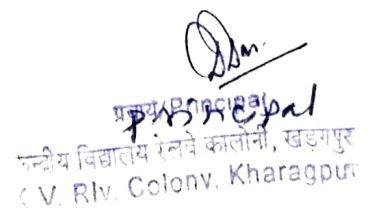 प्राचार्य/Principal
Principal
केन्द्रीय विद्यालय रेलवे कालोनी, खड़गपुर
K V. Rly. Colony, Kharagpur